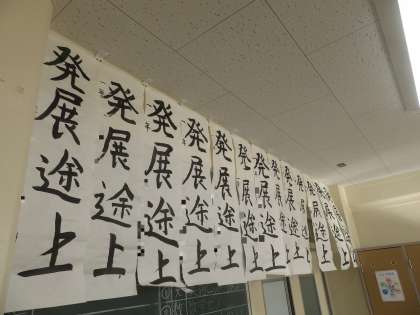 発展途上
発展途上
発展途上
発展途上
発展途上
発展途上
発展途上
発展途上
発展途上
発展途上